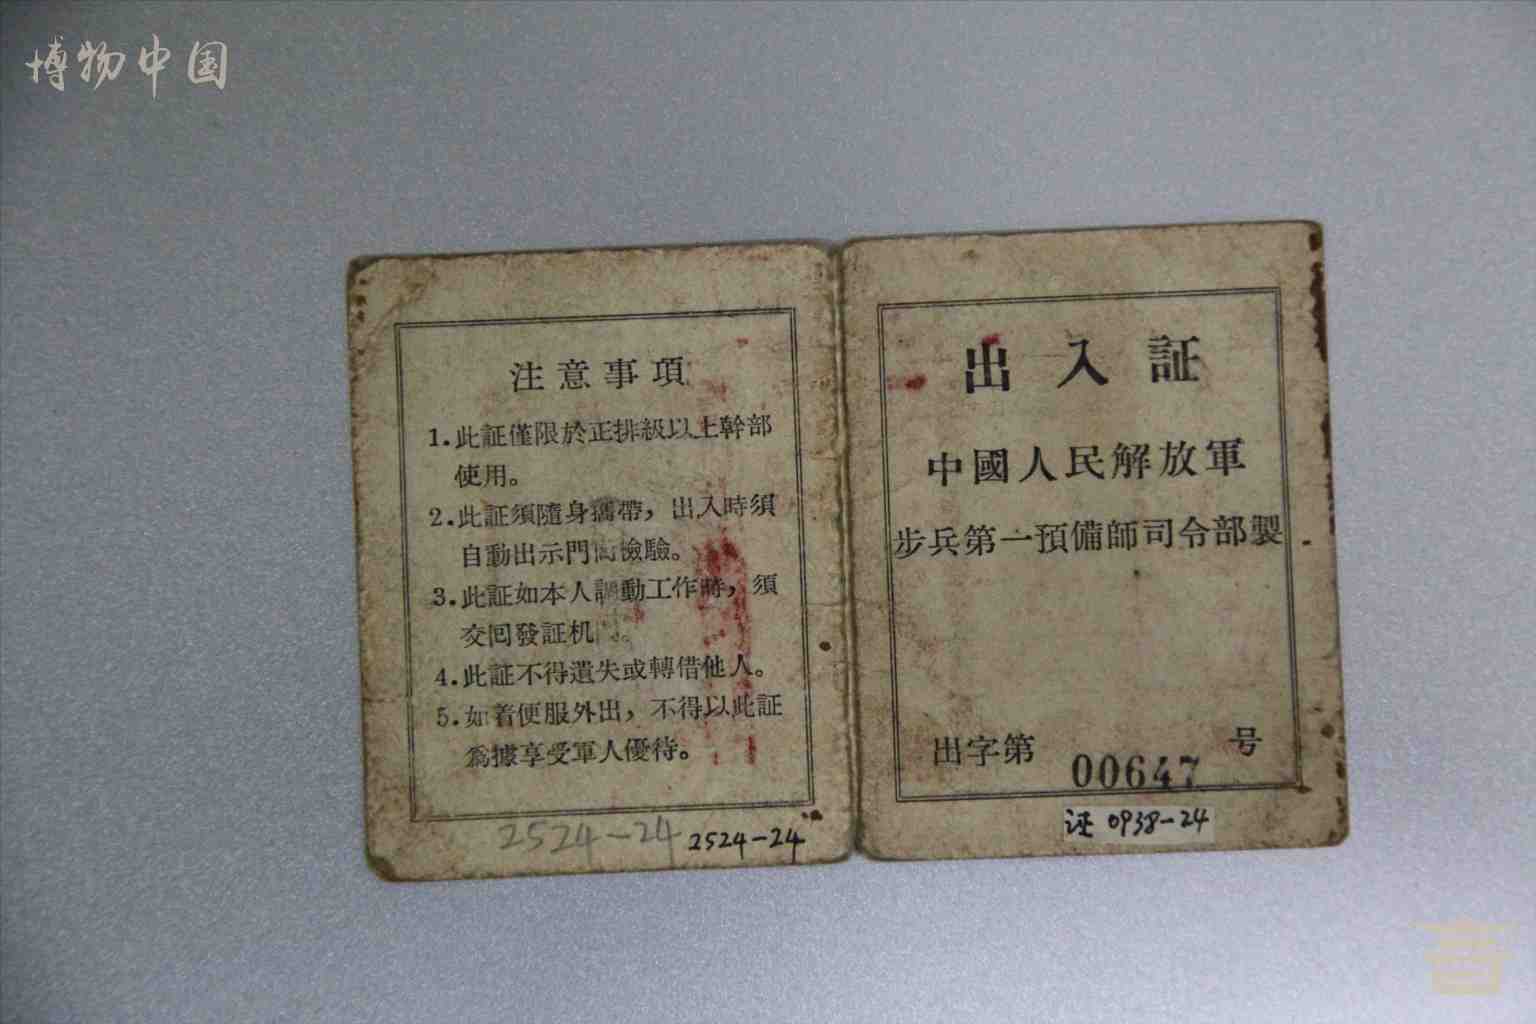 博物中国
注意事項
1.此証僅限於正排級以上幹部
使用。
2.此証須隨身攜帶，出入時須
自動出示門衛檢驗。
3.此証如本人調動工作時，須
交回發証机
4.此証不得遺失或轉借他人。
5.如着便服外出，不得以此証
爲據享受軍人優待。
2524-24 2524-24
出入証
中國人民解放軍
步兵第一預備師司令部製
出字第 00647 号
证 0938-24